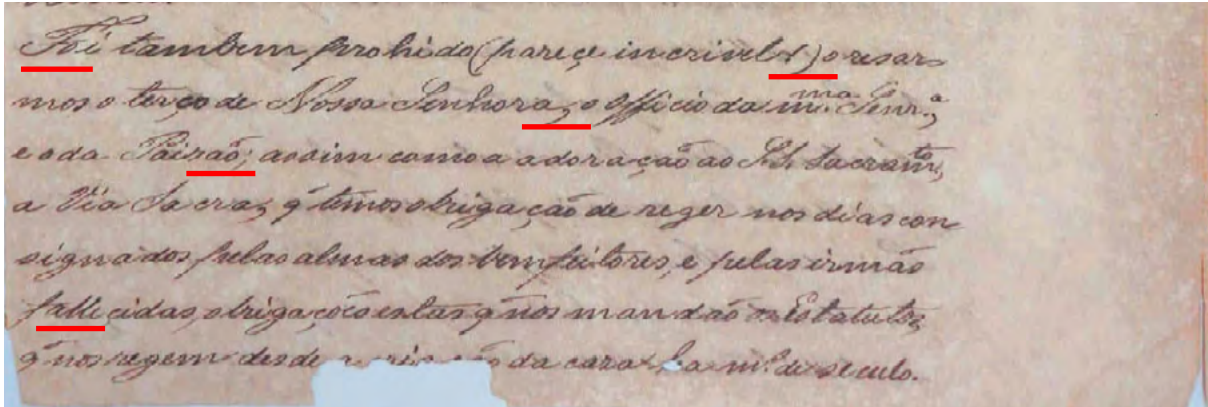 Foi tambem prohido (pareçe incrivel!) o resar-
mos o terço de Nossa Senhora, o Officio da m.ma Senr.ª,
e o da Paixaõ, assim como a adoraçaõ ao SS. Sacram.to,
a Via Sacra, q̃ temos obrigaçaõ de reger nos dias con
signados pelas almas dos bemfeitores, e pelas irmãs
fallecidas, obrigações estas q̃ nos mandaõ os Estatutos,
q̃ nos regem desde a criaçaõ da caza ha m.º de seculo.